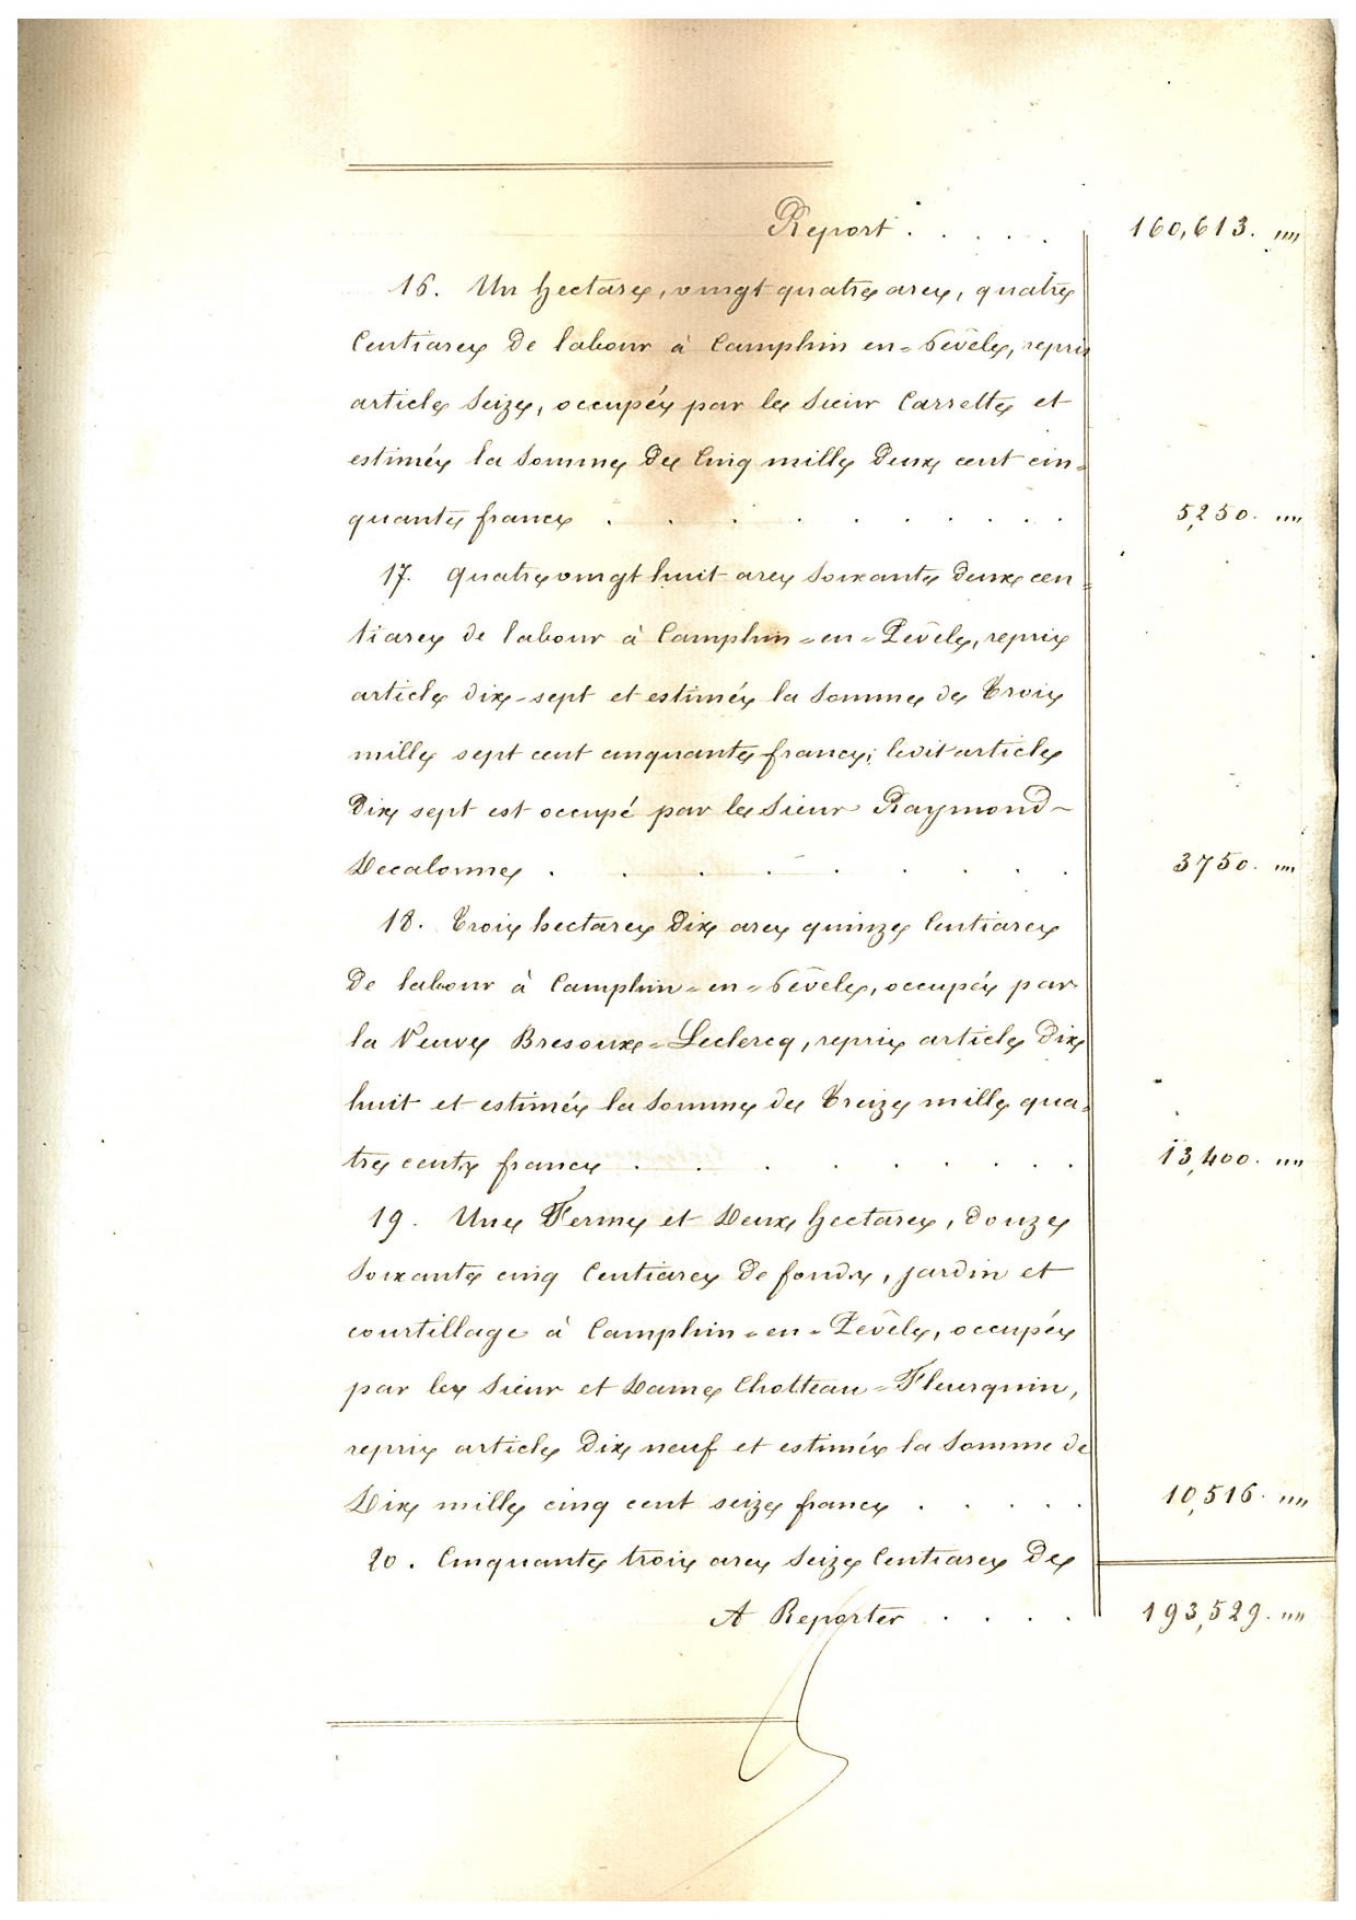 Report . . . . . 160,613. "" 
16. Un hectare, vingt quatre ares, quatre
Centiares de labour à Camphin en=Pévèle, repris
article Seize, occupés par le Sieur Carrette et
estimés la Somme de Cinq mille Deux cent cin=
quante francs . . . . . . . . 5,250. ""
17. Quatrevingt huit ares Soixante Deux cen=
tiares de labour à Camphin=en=Pévèle, repris
article dix-sept et estimés la Somme de Trois
mille sept cent cinquante francs; ledit article
Dix sept est occupé par le Sieur Raymond
Decalonne . . . . . . . . 3750. ""
18. Trois hectares Dix ares quinze Centiares
De labour à Camphin=en=Pévèle, occupés par
la Veuve Bresoux=Leclercq, repris article Dix
huit et estimés la Somme de Treize mille qua=
tre cents francs . . . . . . . 13,400. ""
19. Une Ferme et Deux hectares, douze
Soixante cinq Centiares De fonds, jardin et
courtillage à Camphin=en=Pévèle, occupés
par les Sieur et Dame Chotteau=Fleurquin,
repris article Dix neuf et estimés la Somme de
Dix mille cinq cent seize francs . . . . . 10,516. ""
20. Cinquante trois ares Seize Centiares De
A Reporter . . . . 193,529. ""